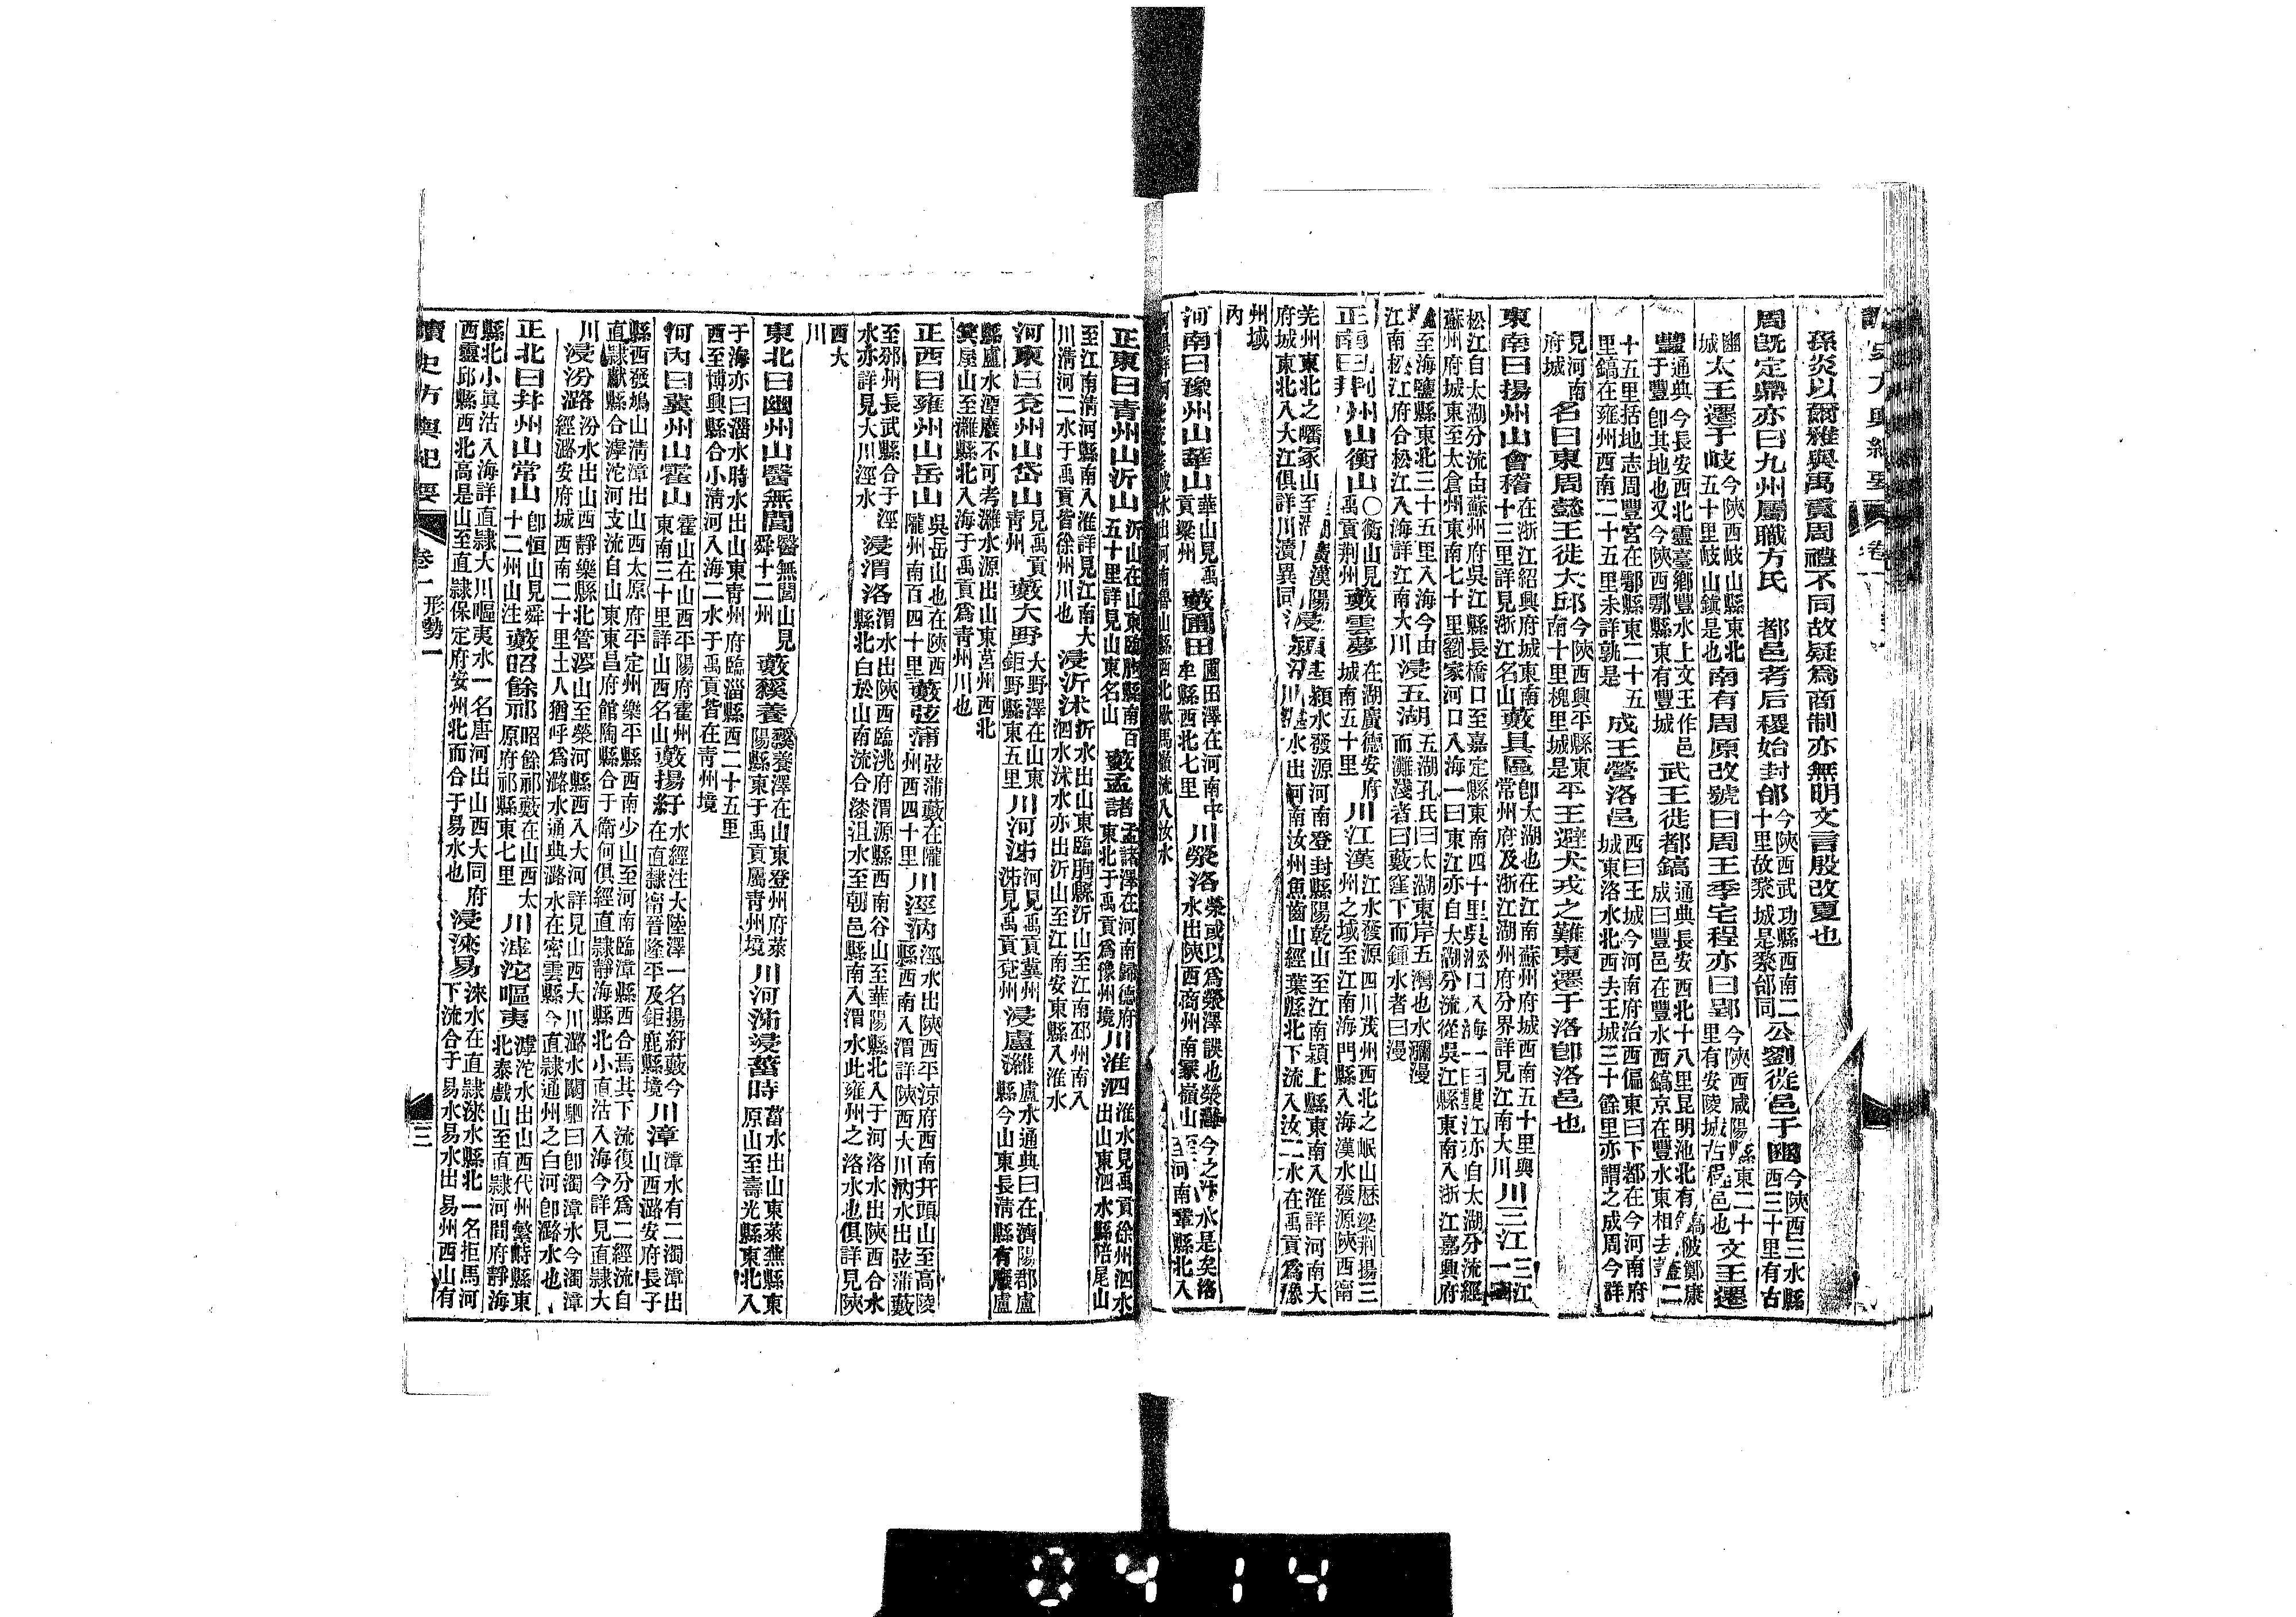 孫炎以爾雅與禹貢周禮不同故疑為商制亦無明文言殷改夏也
周旣定鼎亦曰九州屬職方氏 都邑考后稷始封邰今陝西武功縣西南二十里故斄城是斄邰同公劉徙邑于豳今陝西三水縣西三十里有古
豳城太王遷于岐今陝西岐山縣東北五十里岐山鎮是也南有周原改號曰周王季宅程亦曰郢今陝西咸陽縣東二十里有安陵城古程邑也文王遷
豐通典今長安西北靈臺鄉豐水上文王作邑于豐卽其地也又今陝西鄠縣東有豐城武王徙都鎬通典長安西北十八里昆明池北有鎬陂鄭康成曰豐邑在豐水西鎬京在豐水東相去二
十五里括地志周豐宮在鄠縣東二十五里鎬在雍州西南二十五里未詳孰是成王營洛邑西曰王城今河南府治西偏東曰下都在今河南府城東洛水北西去王城三十餘里亦謂之成周今詳
見河南府城名曰東周懿王徙犬邱今陝西興平縣東南十里槐里城是平王避犬戎之難東遷于洛卽洛邑也
東南曰揚州山會稽在浙江紹興府城東南十三里詳見浙江名山藪具區卽太湖也在江南蘇州府城西南五十里與常州府及浙江湖州府分界詳見江南大川川三江三江一曰
松江自太湖分流由蘇州府吳江縣長橋口至嘉定縣東南四十里吳淞口入海一曰婁江亦自太湖分流經蘇州府城東至太倉州東南七十里劉家河口入海一曰東江亦自太湖分流從吳江縣東南入浙江嘉興府
至海鹽縣東北三十五里入海今由江南松江府合松江入海詳江南大川浸五湖五湖孔氏曰太湖東岸五灣也水瀰漫而灘淺者曰藪窪下而鍾水者曰浸
正南曰荆州山衡山衡山見禹貢荆州藪雲夢在湖廣德安府城南五十里川江漢江水發源四川茂州西北之岷山歷梁荆揚三州之域至江南海門縣入海漢水發源陝西甯
羌州東北之嶓冢山至湖廣漢陽府城東北入大江俱詳川瀆異同浸潁湛潁水發源河南登封縣陽乾山至江南潁上縣東南入淮詳河南大川湛水出河南汝州魚齒山經葉縣北下流入汝二水在禹貢為豫
州域內
河南曰豫州山華山華山見禹貢梁州藪圃田圃田澤在河南中牟縣西北七里川滎洛滎或以為滎澤誤也滎今之汴水是矣洛水出陝西商州南冢嶺山至河南鞏縣北入
正東曰青州山沂山沂山在山東臨朐縣南百五十里詳見山東名山藪孟諸孟諸澤在河南歸德府東北于禹貢為豫州境川淮泗淮水見禹貢徐州泗水出山東泗水縣陪尾山
至江南清河縣南入淮詳見江南大川清河二水于禹貢皆徐州川也浸沂沭沂水出山東臨朐縣沂山至江南邳州南入泗水沭水亦出沂山至江南安東縣入淮水
河東曰兗州山岱山見禹貢青州藪大野大野澤在山東鉅野縣東五里川河泲河見禹貢冀州泲見禹貢兗州浸盧濰盧水通典曰在濟陽郡盧縣今山東長清縣有廢盧
縣盧水湮廢不可考濰水源出山東莒州西北箕屋山至濰縣北入海于禹貢為青州川也
正西曰雍州山岳山吳岳山也在陝西隴州南百四十里藪弦蒲弦蒲藪在隴州西四十里川涇汭涇水出陝西平涼府西南幵頭山至高陵縣西南入渭詳陝西大川汭水出弦蒲藪
至邠州長武縣合于涇水亦詳見大川涇水浸渭洛渭水出陝西臨洮府渭源縣西南谷山至華陽縣北入于河洛水出陝西合水縣北白於山南流合漆沮水至朝邑縣南入渭水此雍州之洛水也俱詳見陝
西大川
東北曰幽州山醫無閭醫無閭山見舜十二州藪貕養貕養澤在山東登州府萊陽縣東于禹貢屬青州境川河泲浸菑時菑水出山東萊蕪縣東原山至壽光縣東北入
于海亦曰淄水時水出山東青州府臨淄縣西二十五里西至博興縣合小清河入海二水于禹貢皆在青州境
河內曰冀州山霍山霍山在山西平陽府霍州東南三十里詳山西名山藪揚紆水經注大陸澤一名揚紆藪今在直隸甯晉隆平及鉅鹿縣境川漳漳水有二濁漳出山西潞安府長子
縣西發鳩山清漳出山西太原府平定州樂平縣西南少山至河南臨漳縣西合焉其下流復分為二經流自直隸獻縣合滹沱河支流自山東東昌府館陶縣合于衛河俱經直隸靜海縣北小直沽入海今詳見直隸大
川浸汾潞汾水出山西靜樂縣北管涔山至滎河縣西入大河詳見山西大川潞水闞駰曰卽濁漳水今濁漳經潞安府城西南二十里土人猶呼為潞水通典潞水在密雲縣今直隸通州之白河卽潞水也
正北曰幷州山常山卽恒山見舜十二州山注藪昭餘祁昭餘祁藪在山西太原府祁縣東七里川滹沱嘔夷滹沱水出山西代州繁峙縣東北泰戲山至直隸河間府靜海
縣北小直沽入海詳直隸大川嘔夷水一名唐河出山西大同府西靈邱縣西北高是山至直隸保定府安州北而合于易水也浸淶易淶水在直隸淶水縣北一名拒馬河下流合于易水易水出易州西山有
讀史方輿紀要 卷一 形勢一 三
0414